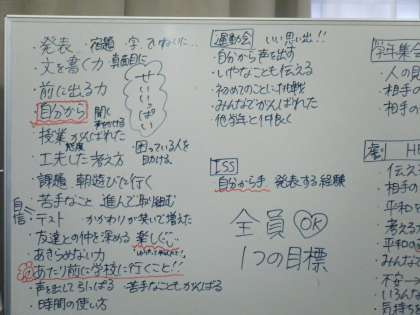 ・発表 宿題 字 ていねいに…
・文を書く力 真面目に
・前に出る力
せいいっぱい
・自分から 聞く
・授業がんばれた
態度
・困っている人を
助ける。
・工夫した考え方
・課題 朝遊びで行く
・苦手なこと 進んで取り組む
自信
・テスト かかわりが笑いで増えた
・友達との仲を深める 楽しく
・あきらめない力
・あたり前に学校に行くこと!!
・声を出して引っぱる ・苦手なこともがんばる
・時間の使い方
運動会 いい思い出!!
・自分から声を出す
・いやなことも伝える
・初めてのことに挑戦
・みんなでがんばれた
・他学年と仲良く
ISS
自分から手 発表する経験
全員 OK
1つの目標
学年集会
・人の
・相手の
・相手の
劇
・伝え
・相手
・平和
・考え
・平和の
・みんな
・不安
・いろん
・気持ちを